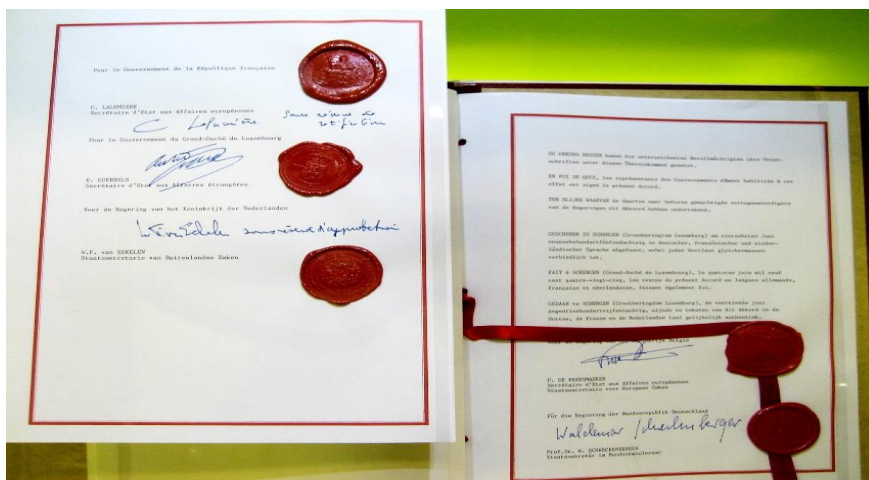 Pour le Gouvernement de la République française
C. LALUMIERE
Secrétaire d'Etat aux Affaires européennes
C Lalumière Sous réserve de
ratification
Pour le Gouvernement du Grand-Duché de Luxembourg
R. GOEBBELS
Secrétaire d'Etat aux Affaires étrangères
Voor de Regering van het Koninkrijk der Nederlanden
sous réserve d'approbation
W.F. van EEKELEN
Staatssecretaris van Buitenlandse Zaken
ZU URKUND DESSEN haben die unterzeichneten Bevollmächtigten ihre Unter-
schriften unter dieses Übereinkommen gesetzt.
EN FOI DE QUOI, les représentants des Gouvernements dûment habilités à cet
effet ont signé le présent Accord.
TEN BLIJKE WAARVAN de daartoe naar behoren gemachtigde vertegenwoordigers
van de Regeringen dit Akkoord hebben ondertekend.
GESCHEHEN ZU SCHENGEN (Grossherzogtum Luxemburg) am vierzehnten Juni
neunzehnhundertfünfundachtzig in deutscher, französischer und nieder-
ländischer Sprache abgefasst, wobei jeder Wortlaut gleichermassen
verbindlich ist.
FAIT A SCHENGEN (Grand-Duché de Luxembourg), le quatorze juin mil neuf
cent quatre-vingt-cinq, les textes du présent Accord en langues allemande,
française et néerlandaise, faisant également foi.
GEDAAN te SCHENGEN (Groothertogdom Luxemburg), de veertiende juni
negentienhonderdvijfentachtig, zijnde de teksten van dit Akkoord in de
Duitse, de Franse en de Nederlandse taal gelijkelijk authentiek.
P. DE KEERSMAEKER
Secrétaire d'Etat aux Affaires européennes
Staatssecretaris voor Europese Zaken
Für die Regierung der Bundesrepublik Deutschland
Waldemar Schreckenberger
Prof.Dr. W. SCHRECKENBERGER
Staatssekretär im Bundeskanzleramt